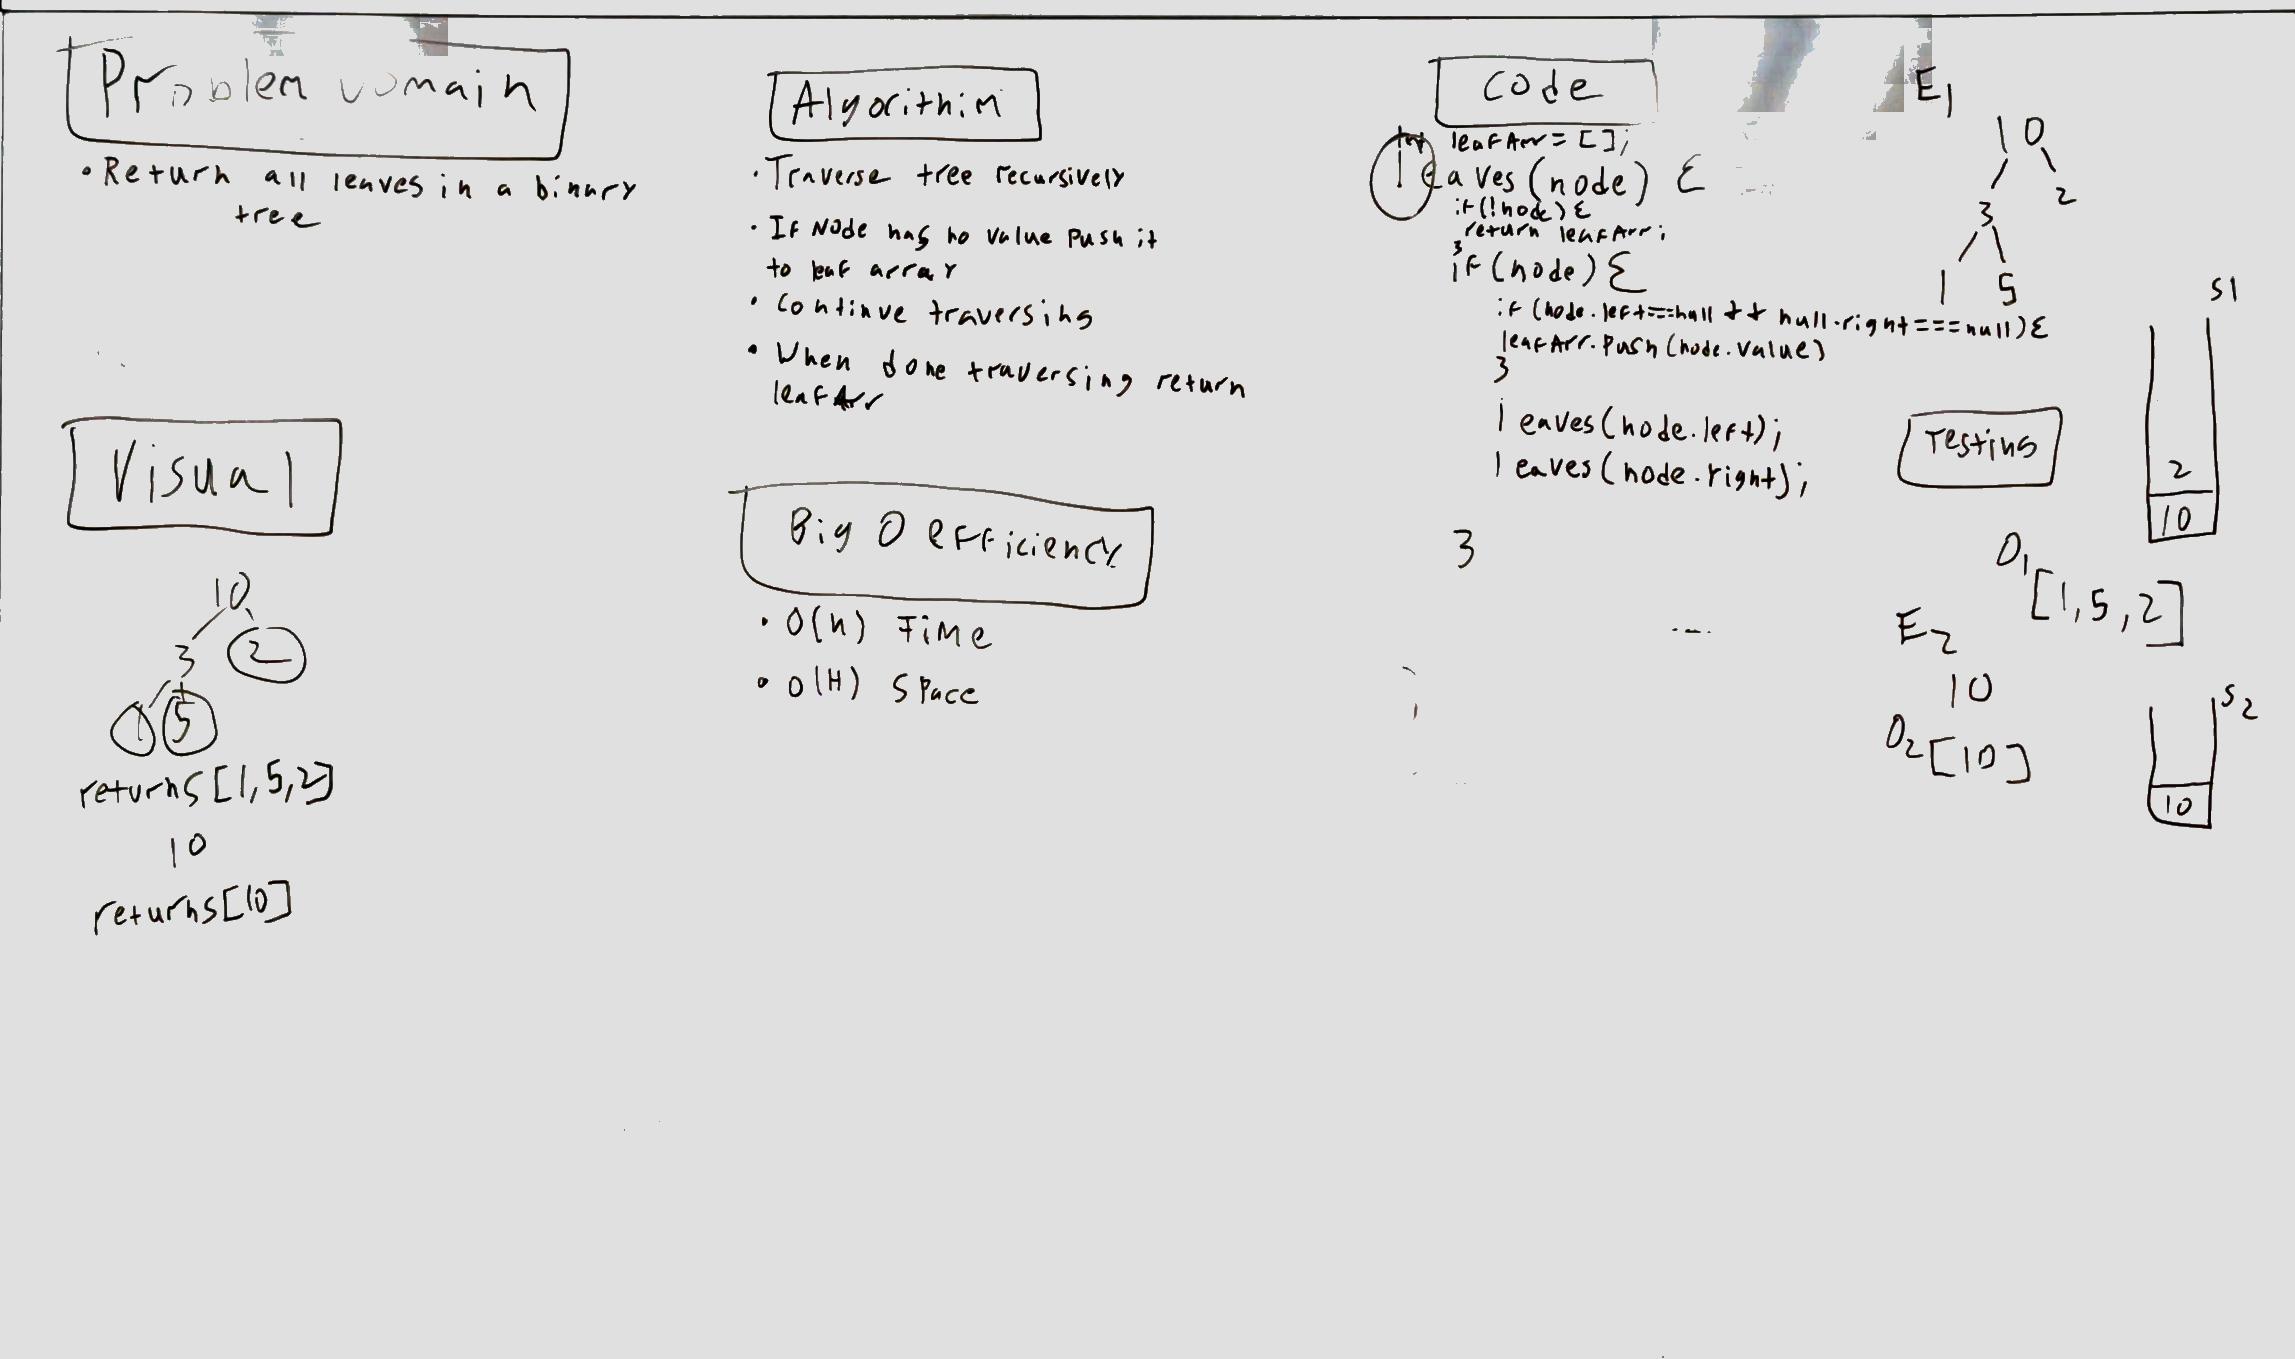 Problem Domain
• Return all leaves in a binary
tree
Visual
10
3 2
1 5
returns [1,5,2]
10
returns [10]
Algorithim
• Traverse tree recursively
• If Node has no value push it
to leaf array
• Continue traversing
• When done traversing return
leafArr
Big O efficiency
• O(n) Time
• O(H) Space
Code
leafArr = [];
leaves(node) {
if(!node) {
return leafArr;
}
if(node) {
if(node.left===null && null.right===null){
leafArr.push(node.value)
}
leaves(node.left);
leaves(node.right);
}
E1
10
3 2
1 5
S1
2
10
Testing
O1
[1,5,2]
E2
10
O2 [10]
S2
10